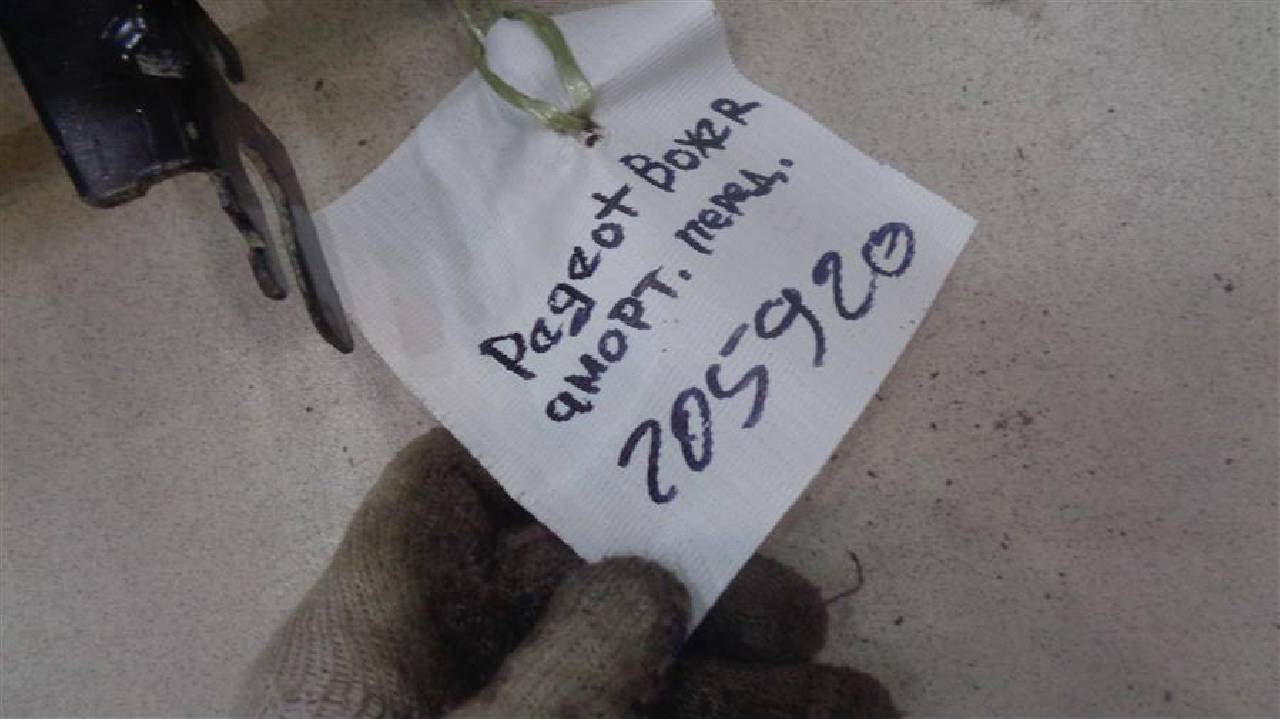 Pageot Boxer
аморт. перед.
205920